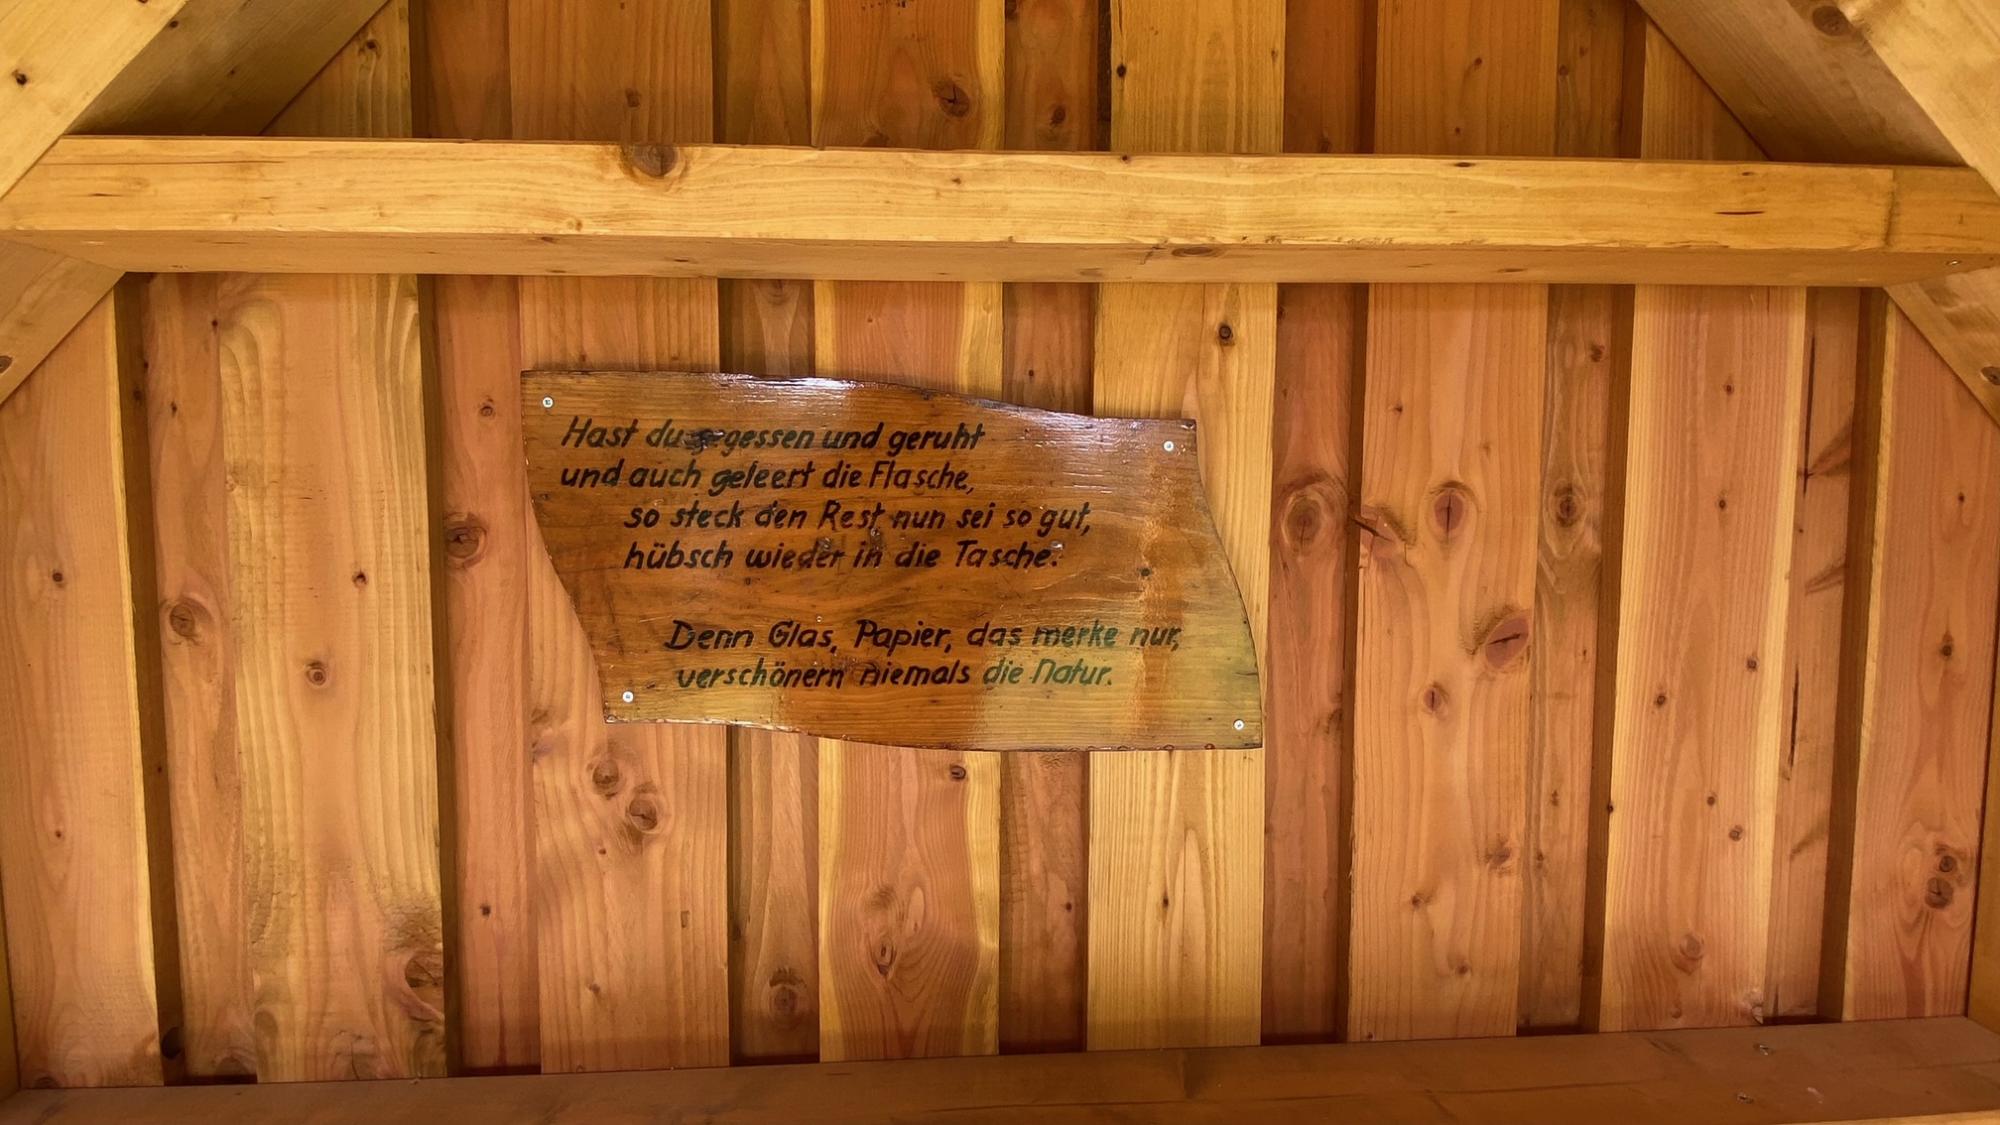 Hast du gegessen und geruht
und auch geleert die Flasche,
so steck den Rest, nun sei so gut,
hübsch wieder in die Tasche.
Denn Glas, Papier, das merke nur,
verschönern niemals die Natur.